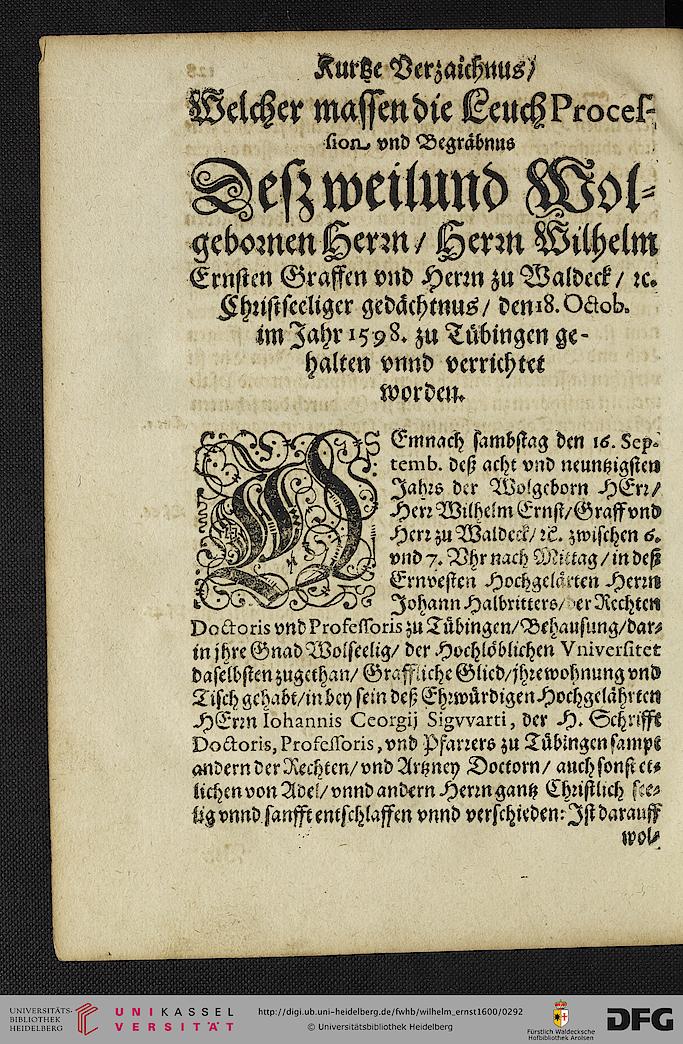 Kurtze Verzaichnus/
Welcher massen die Leuch Proces-
sion vnd Begräbnus
Deß weilund Wol-
gebornen Herrn / Herrn Wilhelm
Ernsten Graffen vnd Herrn zu Waldeck / ꝛc.
Christseeliger gedächtnus / den 18. Octob.
im Jahr 1598. zu Tübingen ge-
halten vnnd verrichtet
worden.
DEmnach sambstag den 16. Sep-
temb. deß acht vnd neuntzigsten
Jahrs der Wolgeborn HErr/
Herr Wilhelm Ernst/Graff vnd
Herr zu Waldeck/ ꝛc. zwischen 6.
vnd 7. Vhr nach Mittag / in deß
Ernvesten Hochgelärten Herrn
Johann Halbritters/ der Rechten
Doctoris vnd Professoris zu Tübingen/Behausung/dar-
in jhre Gnad Wolseelig/ der Hochlöblichen Vniversitet
daselbsten zugethan/ Graffliche Glied/jhre wohnung vnd
Tisch gehabt/in bey sein deß Ehrwürdigen Hochgelährten
HErrn Iohannis Ceorgij Sigvvarti, der H. Schrifft
Doctoris, Professoris, vnd Pfarrers zu Tübingen sampt
andern der Rechten/ vnd Artzney Doctorn/ auch sonst et-
lichen von Adel/ vnnd andern Herrn gantz Christlich see-
lig vnnd sanfft entschlaffen vnnd verschieden: Ist darauff
wol-
UNIVERSITÄTS-
BIBLIOTHEK
HEIDELBERG
UNIKASSEL
VERSITÄT
http://digi.ub.uni-heidelberg.de/fwhb/wilhelm_ernst1600/0292
© Universitätsbibliothek Heidelberg
Fürstlich Waldecksche
Hofbibliothek Arolsen
DFG